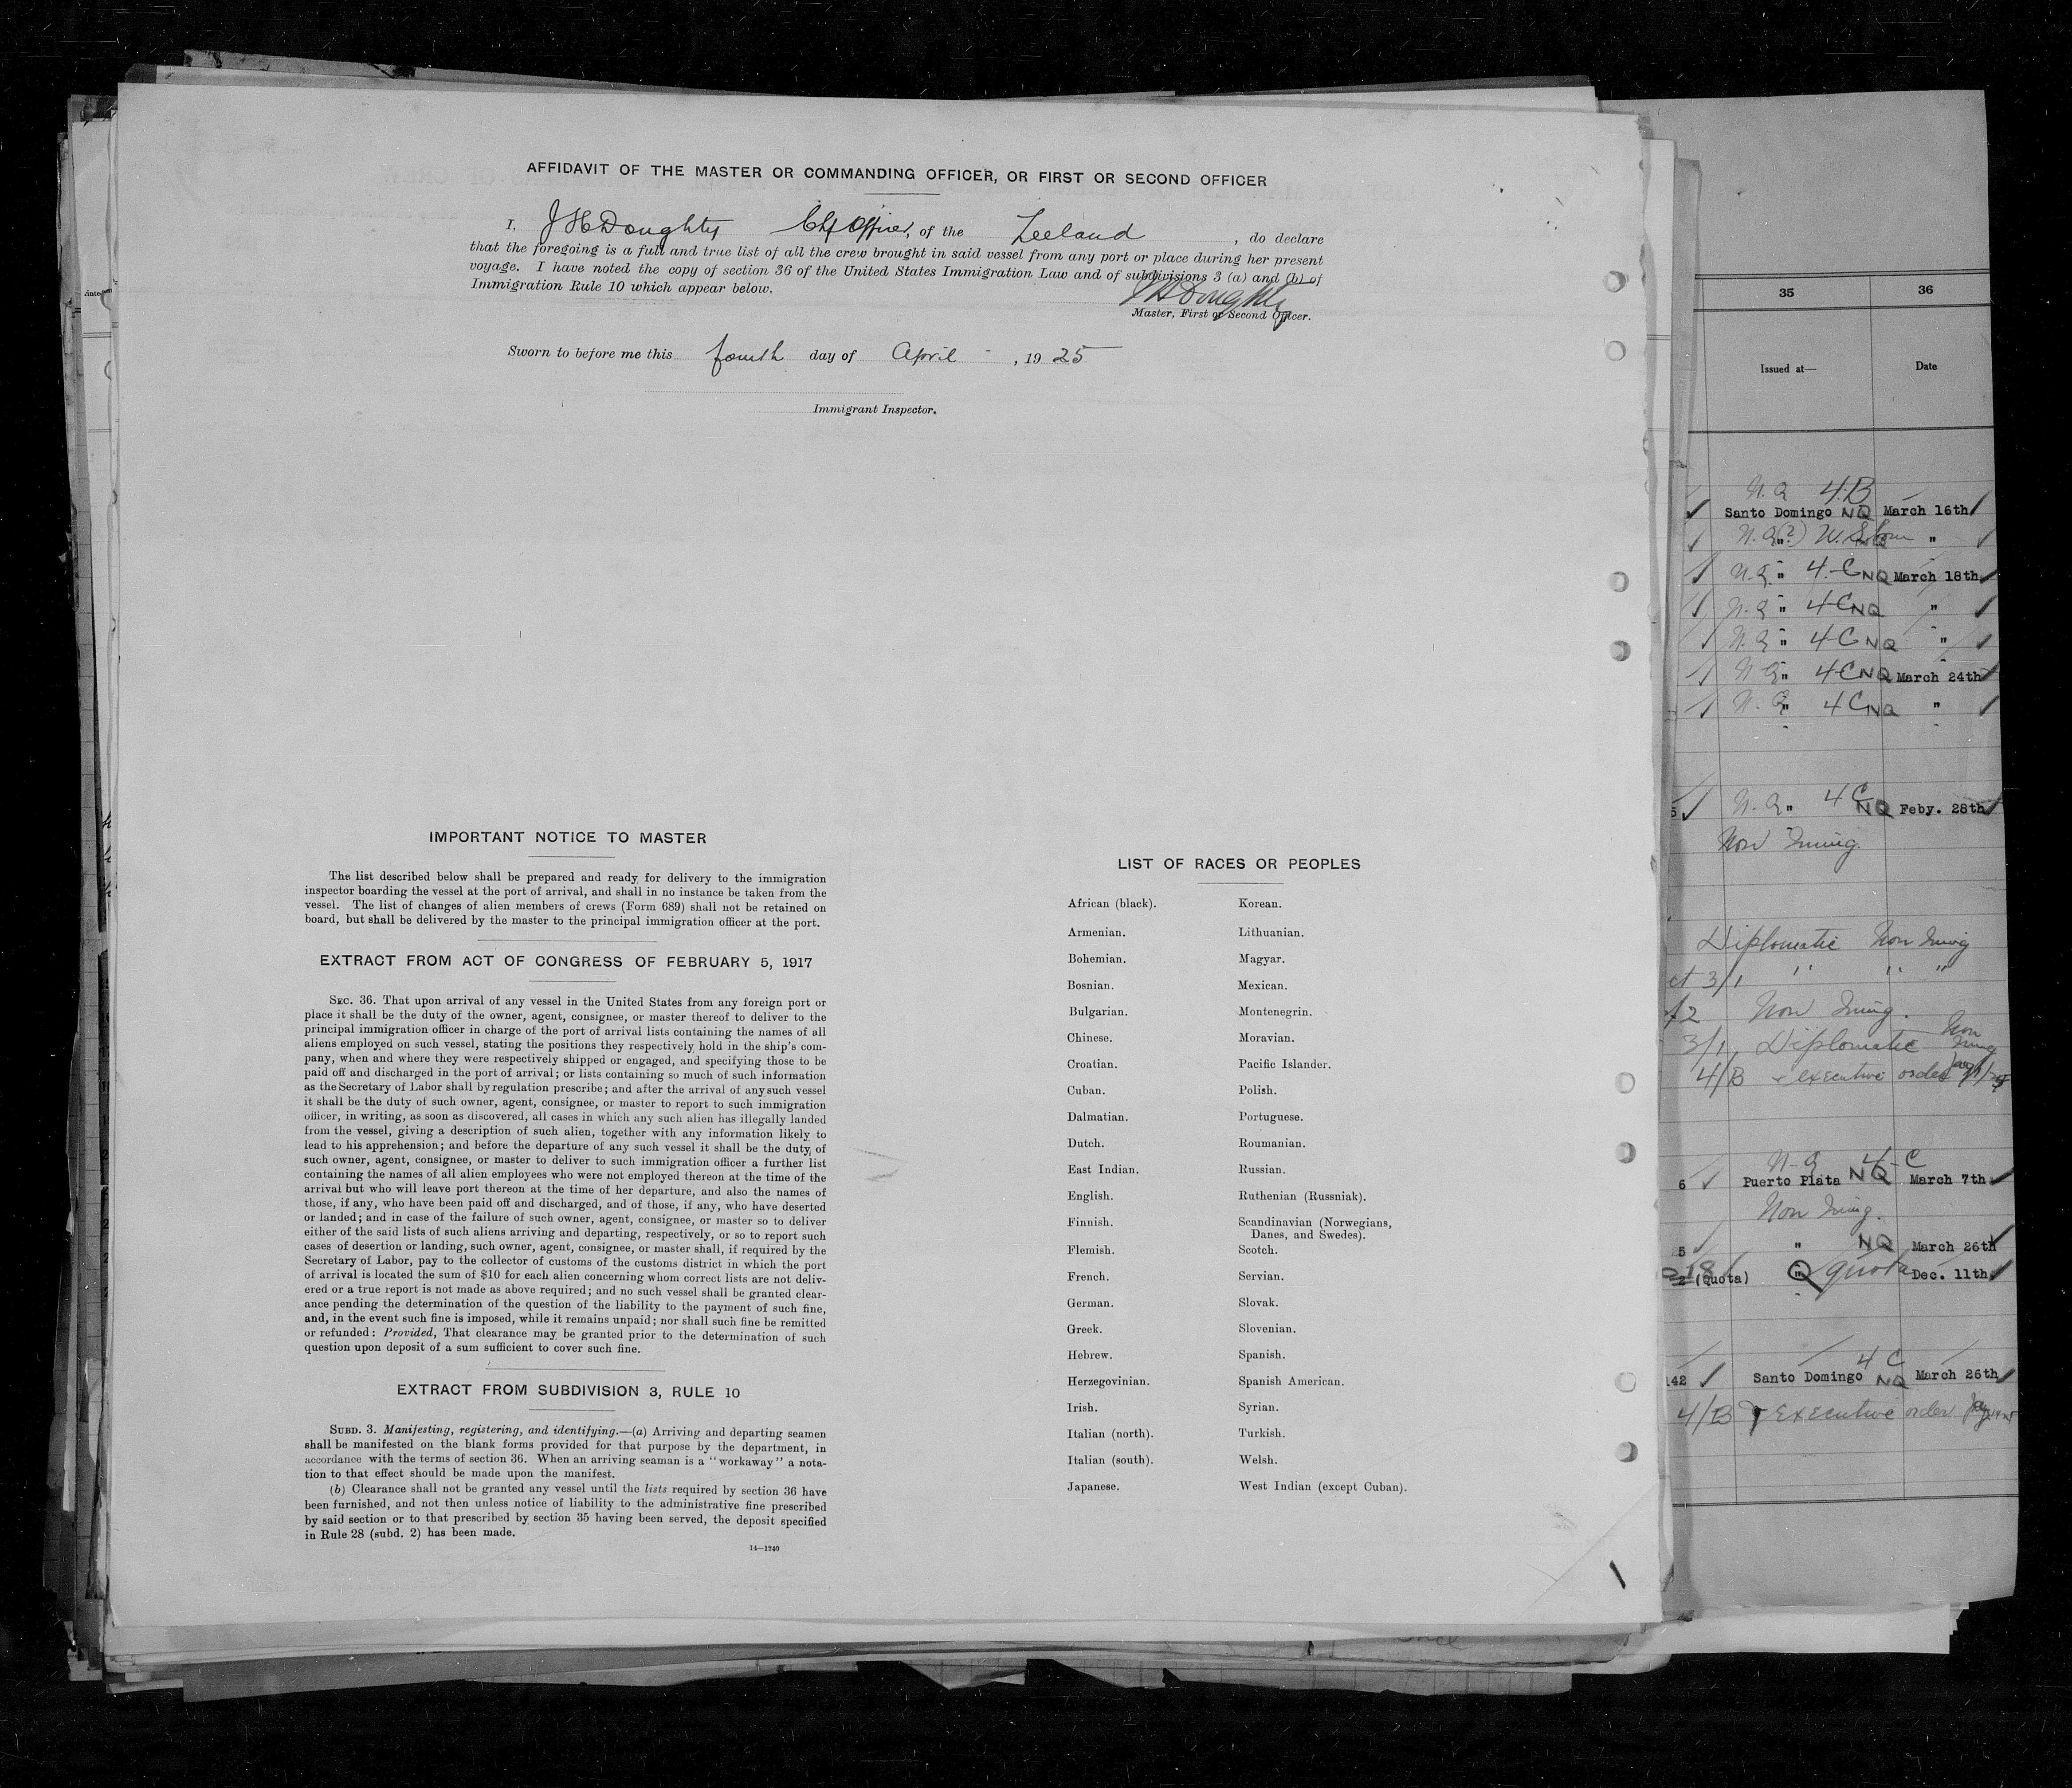 AFFIDAVIT OF THE MASTER OR COMMANDING OFFICER, OR FIRST OR SECOND OFFICER
I, J H Doughty Chf Officer, of the Zeeland , do declare
that the foregoing is a full and true list of all the crew brought in said vessel from any port or place during her present
voyage. I have noted the copy of section 36 of the United States Immigration Law and of subdivisions 3 (a) and (b) of
Immigration Rule 10 which appear below.
J H Doughty
Master, First or Second Officer.
Sworn to before me this fourth day of April , 19 25
Immigrant Inspector.
IMPORTANT NOTICE TO MASTER
The list described below shall be prepared and ready for delivery to the immigration
inspector boarding the vessel at the port of arrival, and shall in no instance be taken from the
vessel. The list of changes of alien members of crews (Form 689) shall not be retained on
board, but shall be delivered by the master to the principal immigration officer at the port.
EXTRACT FROM ACT OF CONGRESS OF FEBRUARY 5, 1917
SEC. 36. That upon arrival of any vessel in the United States from any foreign port or
place it shall be the duty of the owner, agent, consignee, or master thereof to deliver to the
principal immigration officer in charge of the port of arrival lists containing the names of all
aliens employed on such vessel, stating the positions they respectively hold in the ship's com-
pany, when and where they were respectively shipped or engaged, and specifying those to be
paid off and discharged in the port of arrival; or lists containing so much of such information
as the Secretary of Labor shall by regulation prescribe; and after the arrival of any such vessel
it shall be the duty of such owner, agent, consignee, or master to report to such immigration
officer, in writing, as soon as discovered, all cases in which any such alien has illegally landed
from the vessel, giving a description of such alien, together with any information likely to
lead to his apprehension; and before the departure of any such vessel it shall be the duty of
such owner, agent, consignee, or master to deliver to such immigration officer a further list
containing the names of all alien employees who were not employed thereon at the time of the
arrival but who will leave port thereon at the time of her departure, and also the names of
those, if any, who have been paid off and discharged, and of those, if any, who have deserted
or landed; and in case of the failure of such owner, agent, consignee, or master so to deliver
either of the said lists of such aliens arriving and departing, respectively, or so to report such
cases of desertion or landing, such owner, agent, consignee, or master shall, if required by the
Secretary of Labor, pay to the collector of customs of the customs district in which the port
of arrival is located the sum of $10 for each alien concerning whom correct lists are not deliv-
ered or a true report is not made as above required; and no such vessel shall be granted clear-
ance pending the determination of the question of the liability to the payment of such fine,
and, in the event such fine is imposed, while it remains unpaid; nor shall such fine be remitted
or refunded: Provided, That clearance may be granted prior to the determination of such
question upon deposit of a sum sufficient to cover such fine.
EXTRACT FROM SUBDIVISION 3, RULE 10
SUBD. 3. Manifesting, registering, and identifying.—(a) Arriving and departing seamen
shall be manifested on the blank forms provided for that purpose by the department, in
accordance with the terms of section 36. When an arriving seaman is a "workaway" a nota-
tion to that effect should be made upon the manifest.
(b) Clearance shall not be granted any vessel until the lists required by section 36 have
been furnished, and not then unless notice of liability to the administrative fine prescribed
by said section or to that prescribed by section 35 having been served, the deposit specified
in Rule 28 (subd. 2) has been made.
14—1240
LIST OF RACES OR PEOPLES
African (black). Korean.
Armenian. Lithuanian.
Bohemian. Magyar.
Bosnian. Mexican.
Bulgarian. Montenegrin.
Chinese. Moravian.
Croatian. Pacific Islander.
Cuban. Polish.
Dalmatian. Portuguese.
Dutch. Roumanian.
East Indian. Russian.
English. Ruthenian (Russniak).
Finnish. Scandinavian (Norwegians,
Danes, and Swedes).
Flemish. Scotch.
French. Servian.
German. Slovak.
Greek. Slovenian.
Hebrew. Spanish.
Herzegovinian. Spanish American.
Irish. Syrian.
Italian (north). Turkish.
Italian (south). Welsh.
Japanese. West Indian (except Cuban).
35 36
Issued at— Date
N.Q 4.B
Santo Domingo NQ March 16th
N.Q (?) "
N.Q " 4-C NQ March 18th
N.Q " 4C NQ "
N.Q " 4C NQ "
N Q " 4C NQ March 24th
N.Q " 4C NQ "
5 N.Q " 4C NQ Feby. 28th
Non Immig.
Diplomatic Non Immig
ct 3/1 " " "
f2 Non Immig.
3/1 Diplomatic Non Immig
4/B executive order
N-Q 4-C
6 Puerto Plata NQ March 7th
Non Immig.
5 " NQ March 26th
(Quota) " Q quota Dec. 11th
4 C
142 Santo Domingo NQ March 26th
4/B executive order